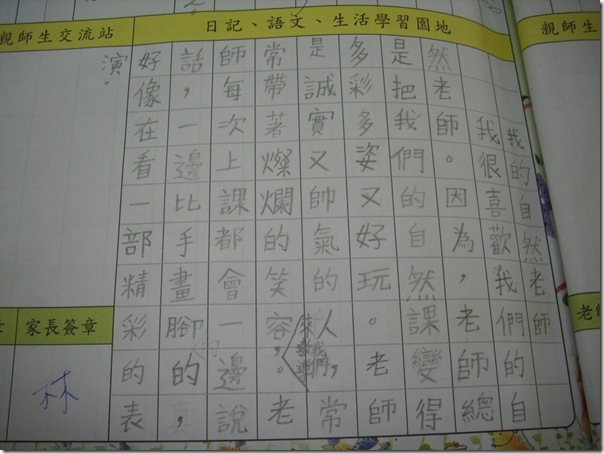 親師生交流站
日記、語文、生活學習園地
親師生
我的自然老師
我很喜歡我們的自
然老師。因為,老師總
是把我們的自然課變得
多彩多姿又好玩。老師
是誠實又帥氣的人,常
常帶著燦爛的笑容,。老
師每次上課都會一邊說
話,一邊比手畫腳的,
好像在看一部精彩的表
演。
章
家長簽章
林